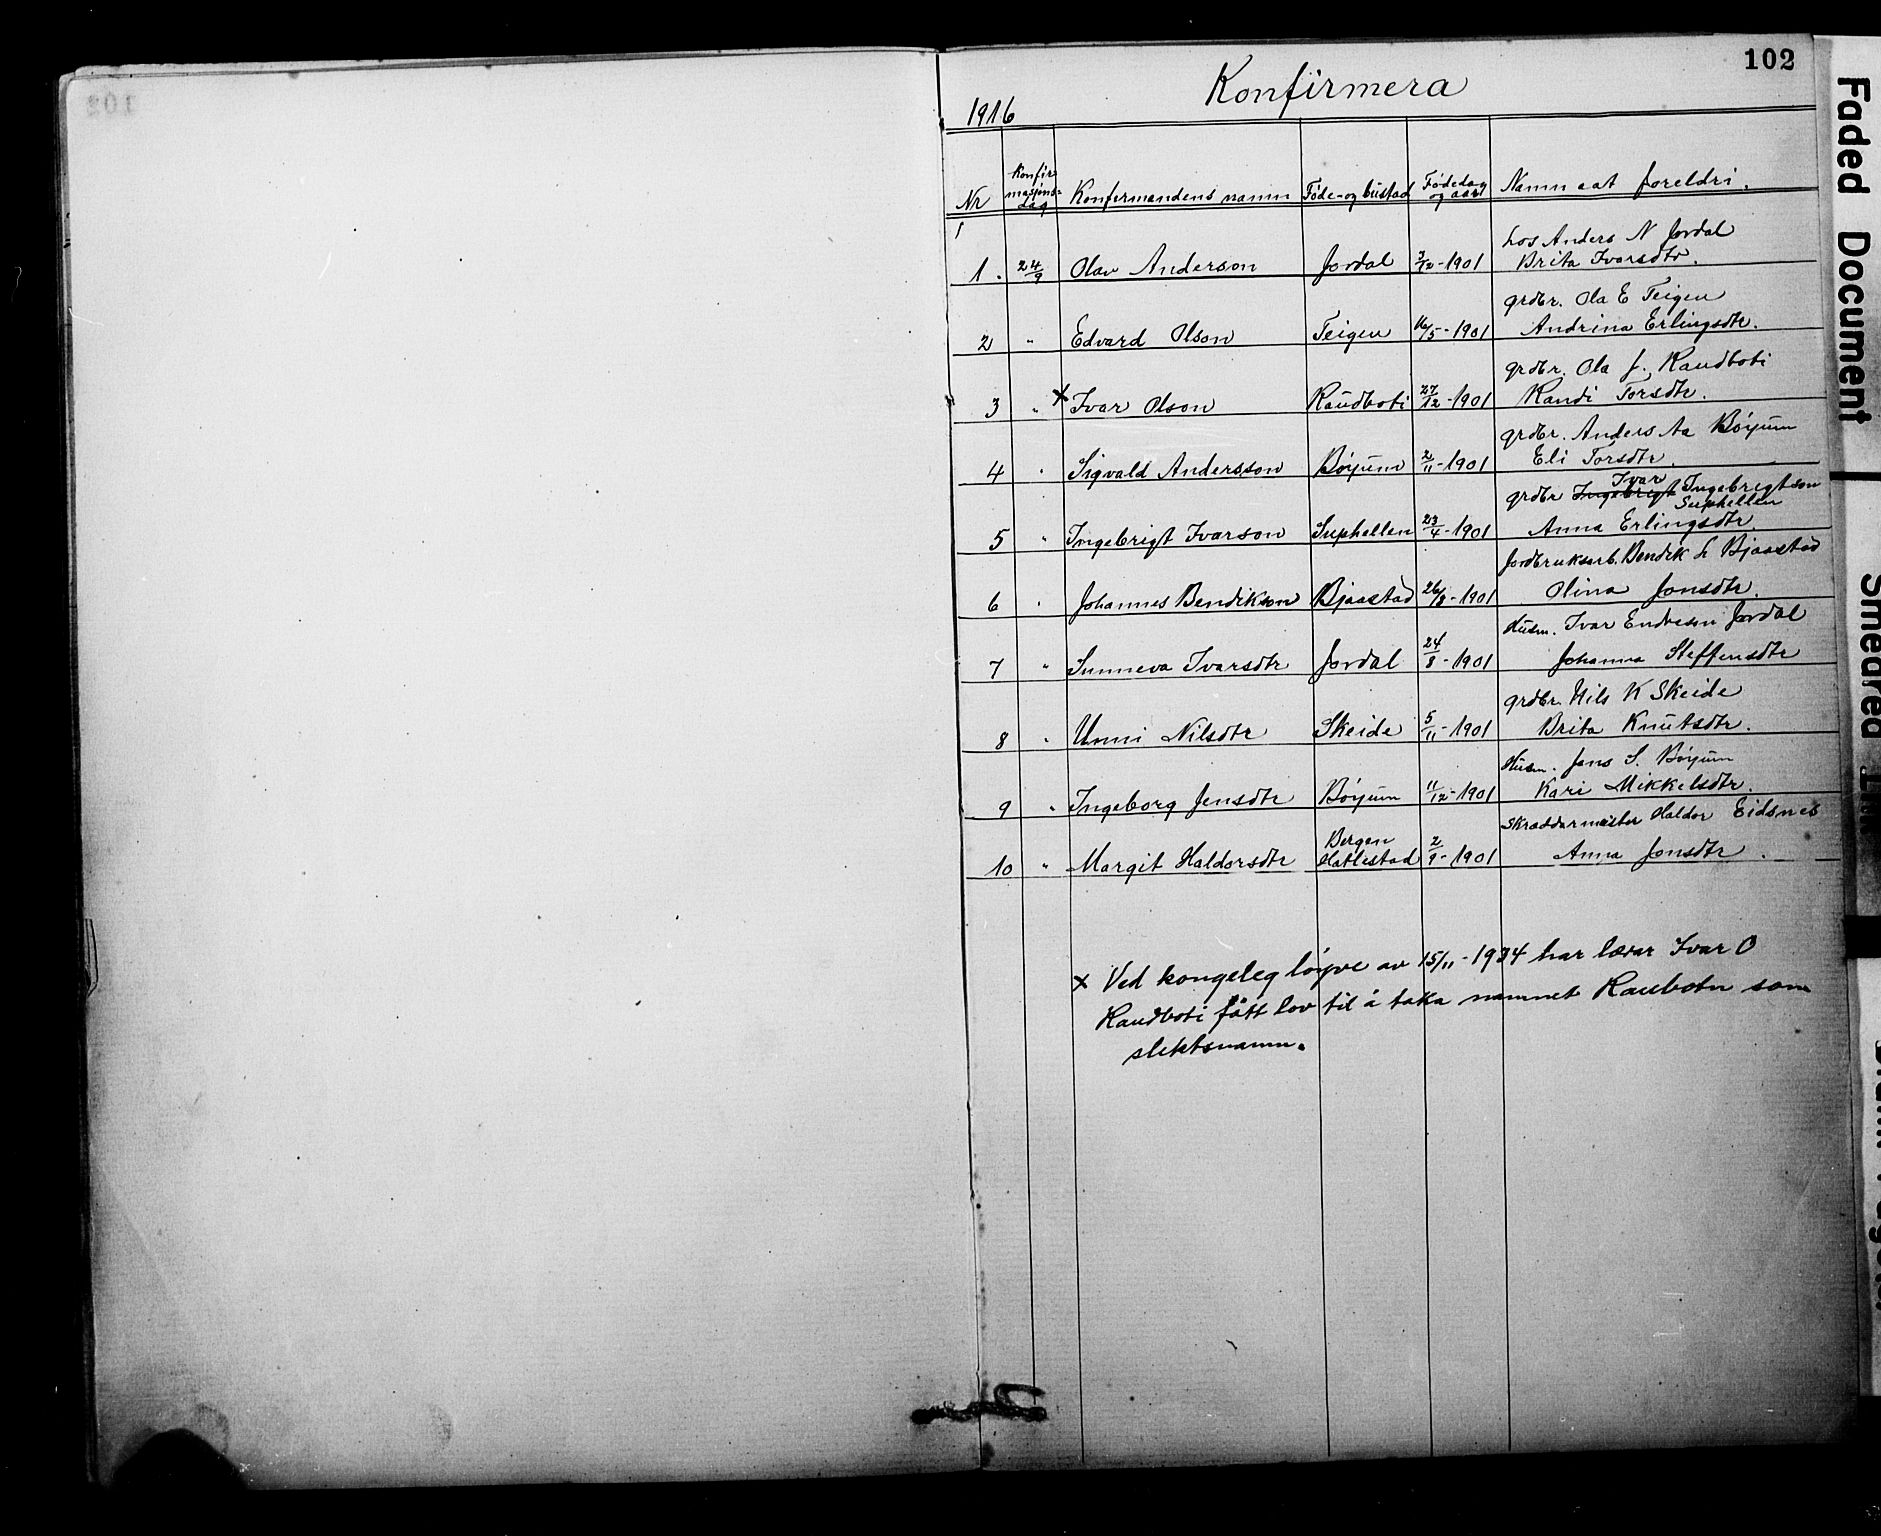 102
Konfirmera
1916
Nr Konfirmasjons=dag Konfirmandens namn Føde- og bustad Fødedag og aar Namn aat foreldri.
1. 24/9 Olav Anderson Jordal 3/12-1901 Los Anders N Jordal
Brita Ivarsdtr.
2 " Edvard Olson Teigen 16/5-1901 grdbr. Ola E Teigen
Andrina Erlingsdtr.
3 " x Ivar Olson Raudboti 27/12-1901 grdbr. Ola J. Raudboti
Randi Torsdtr.
4 " Sigvald Andersson Bøyum 2/11-1901 grdbr. Anders Aa Bøyum
Eli Torsdtr.
5 " Ingebrigt Ivarson Suphellen 23/4-1901 grdbr Ingebrigt Ivar Ingebrigtson Suphellen
Anna Erlingsdtr
6 " Johannes Bendikson Bjaastad 26/8-1901 Jordbruksarb. Bendik L Bjaastad
Olina Jonsdtr.
7 " Sunneva Ivarsdtr Jordal 24/8-1901 Husm. Ivar Endreson Jordal
Johanna Steffensdtr
8 " Unni Nilsdtr Skeide 5/11-1901 grdbr. Nils K Skeide
Brita Knutsdtr.
9 " Ingeborg Jensdtr Bøyum 11/12-1901 Husm. Jens S. Bøyum
Kari Mikkelsdtr.
10 " Margit Haldorsdtr Bergen Hatlestad 2/9-1901 Skræddarmeister Haldor Eidsnes
Anna Jonsdtr.
x Ved kongeleg løyve av 15/11-1934 har lærar Ivar O
Raudboti fått lov til å taka namnet Raubotn som
slektsnamn.
Faded Document
Smeared Ink